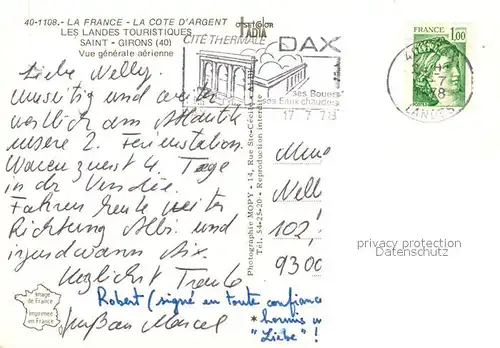 40-1108.- LA FRANCE - LA COTE D'ARGENT
LES LANDES TOURISTIQUES
SAINT - GIRONS (40)
Vue générale aérienne
CITÉ THERMALE
DAX
ses Boues
ses Eaux chaudes
17 7 78
FRANCE 1,00
LANDES
Liebe Nelly.
und weiter
westlich am Atlantik
unsere 2. Ferienstation
Waren zuerst 4 Tage
in der Vendée.
Fahren heute weiter
Richtung Albi und
irgendwann Aix.
Herzlichst
Robert (signé en toute confiance
* hormis
"Liebe" !
Gruß an Marcel
Photographie MOPY - 14, Rue Ste-Cécile
Tél. 54-25-20 - Reproduction interdite
Mme
Nell
102,
9300
Image
de France
Imprimée
en France
privacy protection
Datenschutz